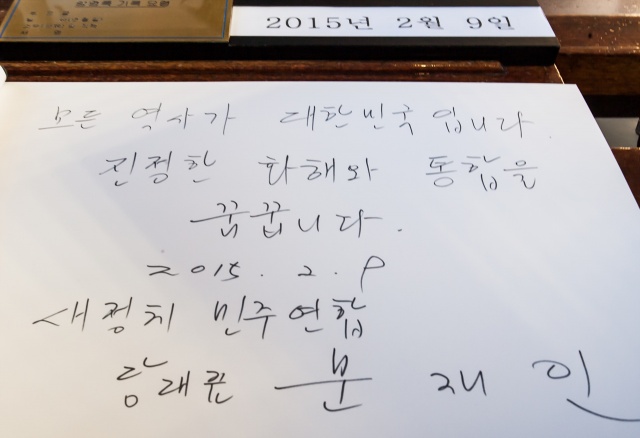 방명록 기록 요령
2015년 2월 9일
모든 역사가 대한민국입니다.
진정한 화해와 통합을
꿈꿉니다.
2015. 2. 9
새정치민주연합
당대표 문재인